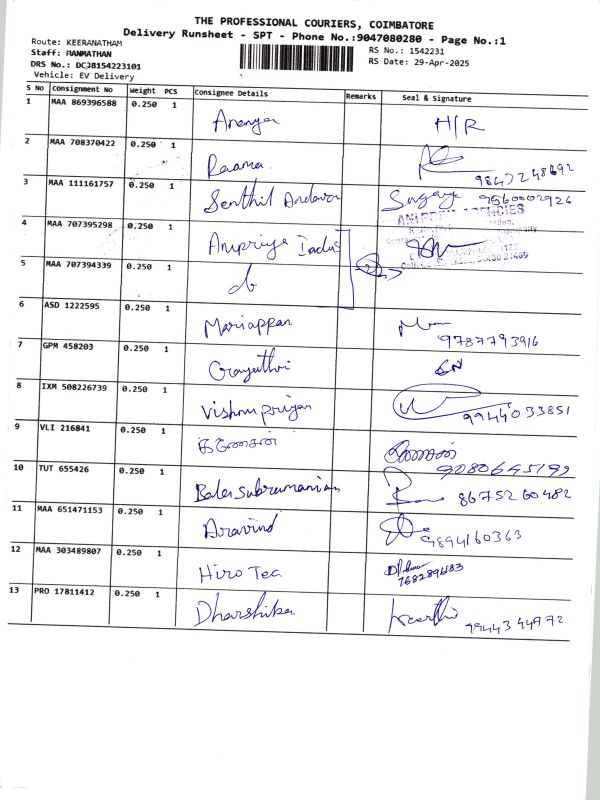 THE PROFESSIONAL COURIERS, COIMBATORE
Delivery Runsheet - SPT - Phone No.:9047080280 - Page No.:1
Route: KEERANATHAM
Staff: MANMATHAN
RS No.: 1542231
DRS No.: DCJB154223101
RS Date: 29-Apr-2025
Vehicle: EV Delivery
S No Consignment No Weight PCS Consignee Details Remarks Seal & Signature
1 MAA 869396588 0.250 1 Ananya H/R
2 MAA 708370422 0.250 1 Raama 9843248692
3 MAA 111161757 0.250 1 Senthil Andavar 9560002926
4 MAA 707395298 0.250 1 Anipriya Indus
5 MAA 707394339 0.250 1 do
6 ASD 1222595 0.250 1 Mariappan 9787793916
7 GPM 458203 0.250 1 Gayathri
8 IXM 508226739 0.250 1 Vishnu priyan 9944033851
9 VLI 216841 0.250 1 கணேசன் கணேசன் 9080645199
10 TUT 655426 0.250 1 Balasubramanian 8675260482
11 MAA 651471153 0.250 1 Aravind 9894160363
12 MAA 303489807 0.250 1 Hiro Tea 7682896183
13 PRO 17811412 0.250 1 Dharshika Keerthi 9944344972